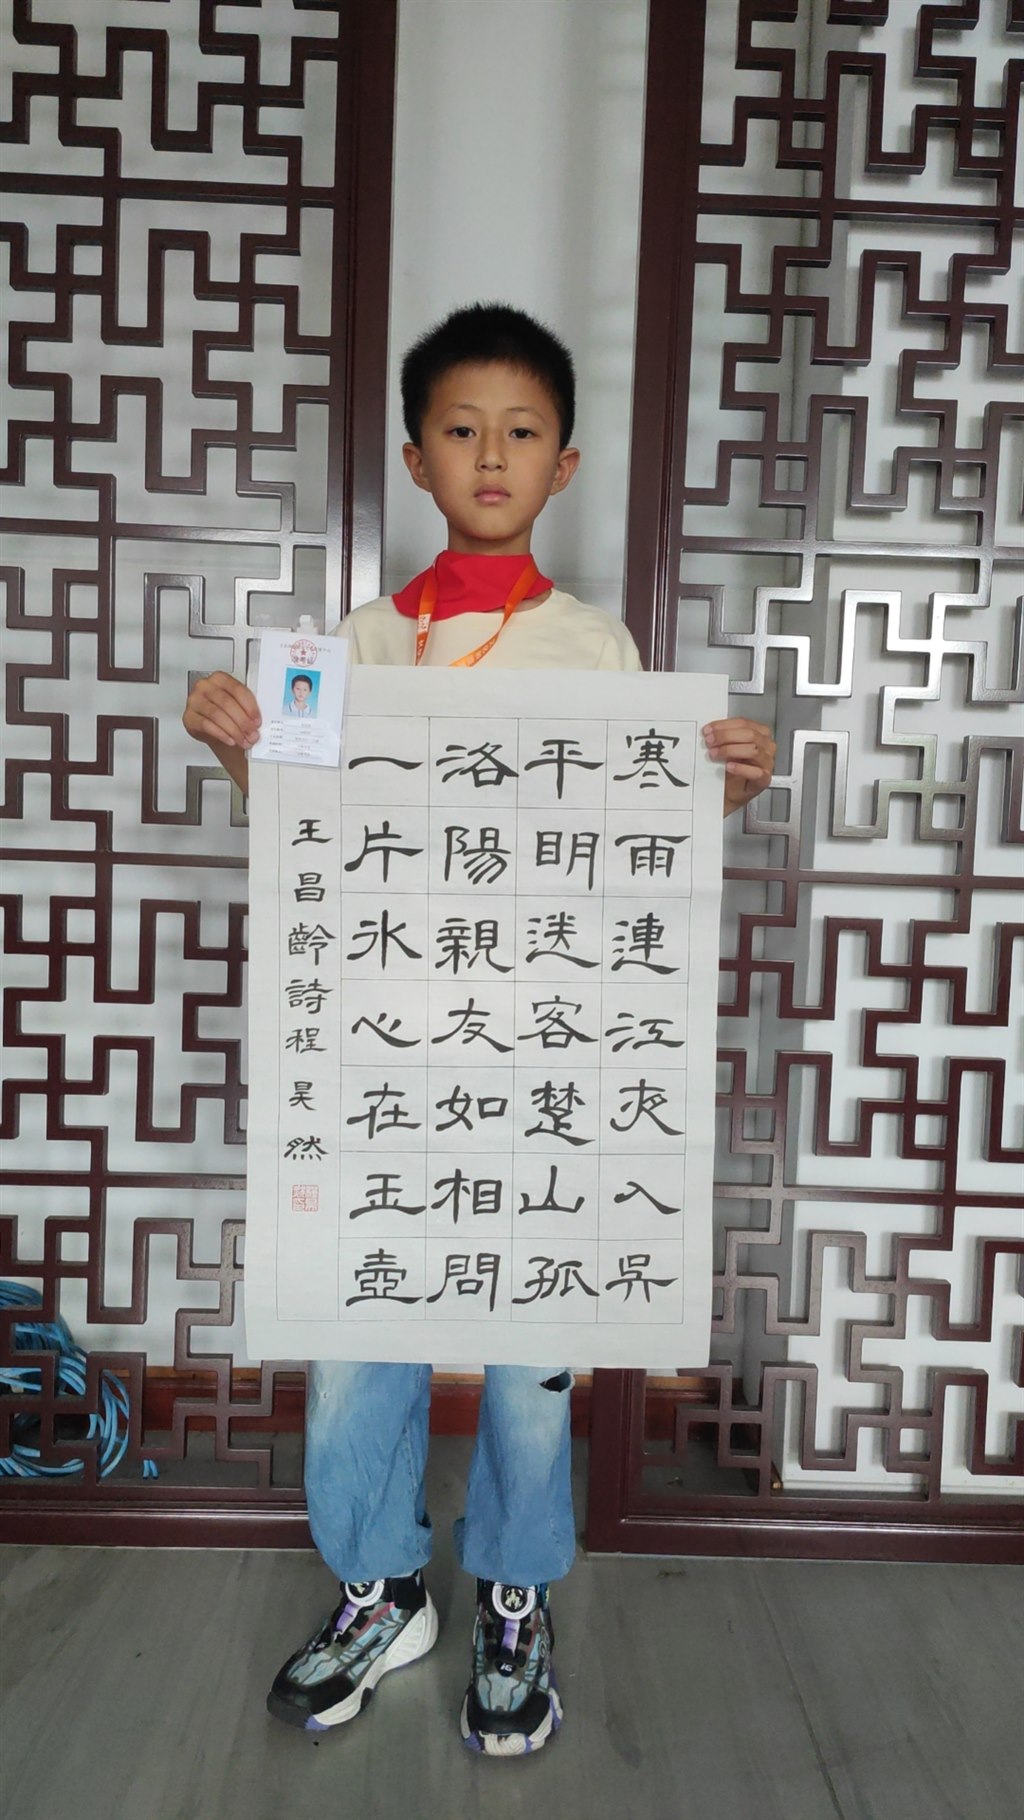 寒雨連江夜入吳
平明送客楚山孤
洛陽親友如相問
一片冰心在玉壺
王昌齡詩程昊然